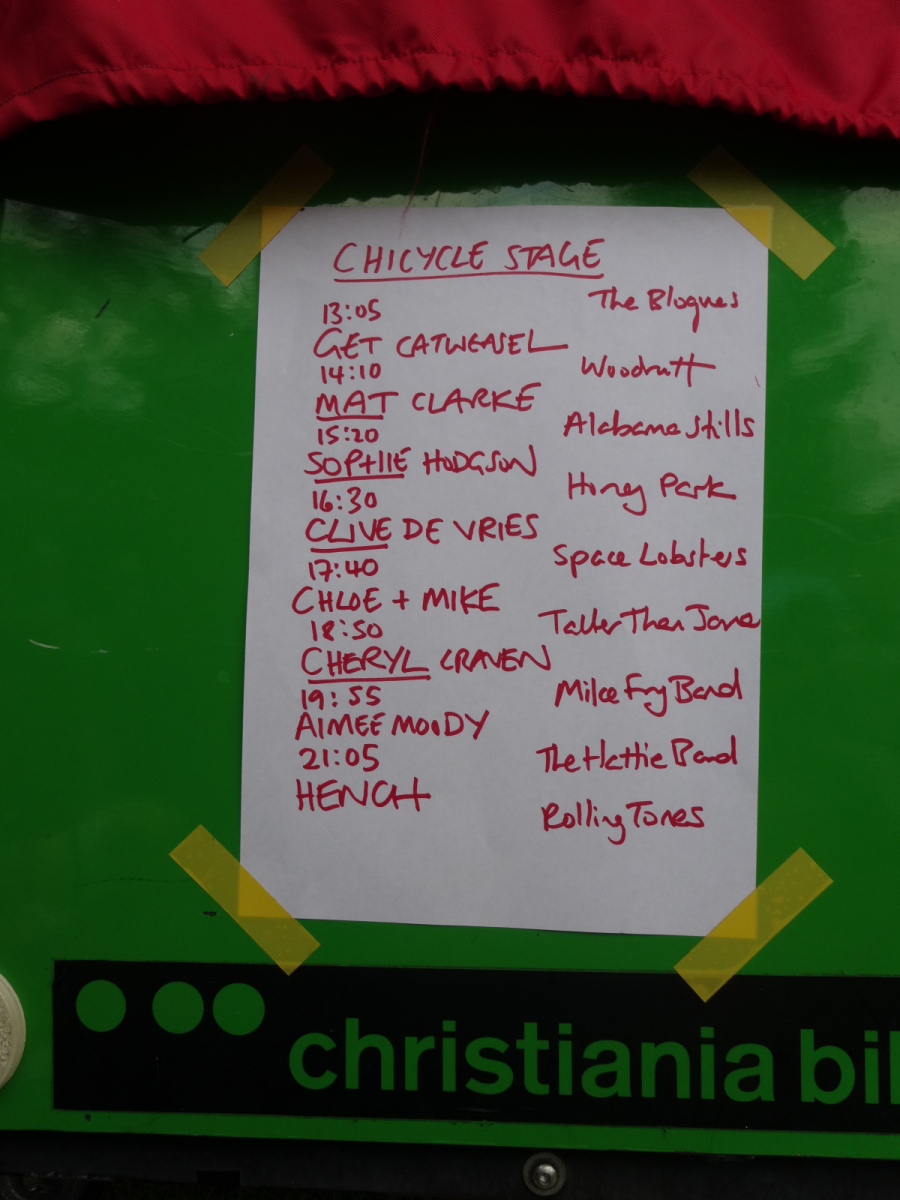 CHICYCLE STAGE
The Blogues
13:05
GET CATWEASEL
Woodruff
14:10
MAT CLARKE
Alabama Stills
15:20
SOPHIE HODGSON
Honey Park
16:30
CLIVE DE VRIES
Space Lobsters
17:40
CHLOE + MIKE
Taller Than Jane
18:50
CHERYL CRAVEN
Mike Fry Band
19:55
AIMEE MOODY
The Hattie Band
21:05
HENCH
Rolling Tones
christiania bi